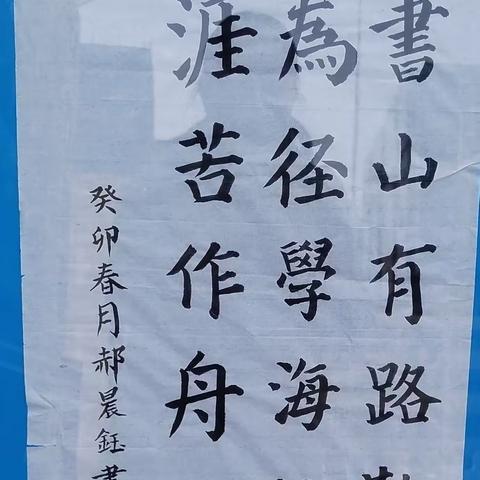 書山有路勤
為徑學海
涯苦作舟
癸卯春月郝晨鈺書